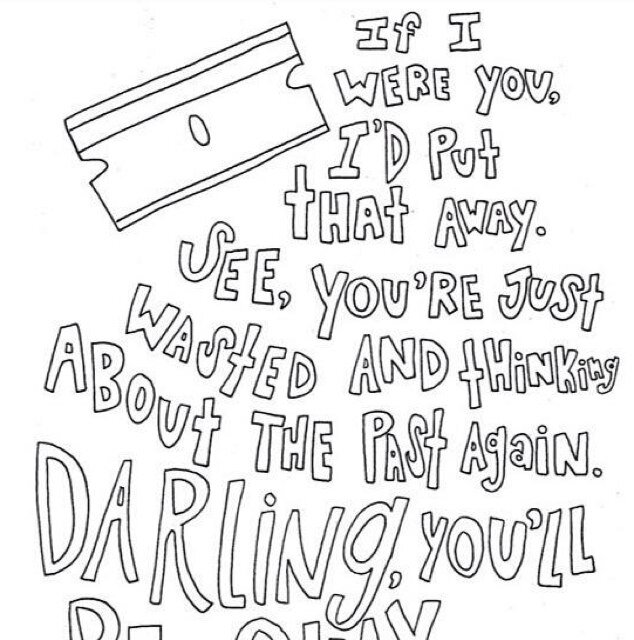 If I
WERE YOU,
I'D PUt
tHAt AWAY.
SEE, YOU'RE JUSt
WAStED AND tHiNKiNg
ABOUt THE PASt AgaiN.
DARLiNg, YOU'LL
BE OKAY